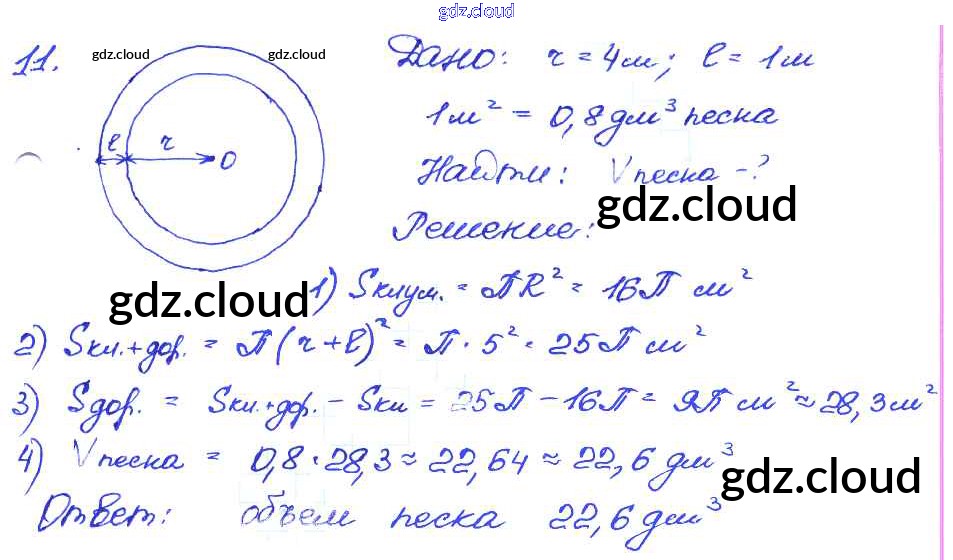 gdz.cloud
11. gdz.cloud gdz.cloud Дано: r = 4м; l = 1м
1м² = 0,8 дм³ песка
l r O Найти: Vпеска - ?
gdz.cloud
Решение:
gdz.cloud 1) Sклум. = ПR² = 16П м²
2) Sкл.+дор. = П(r+l)² = П · 5² = 25П м²
3) Sдор. = Sкл.+дор. - Sкл = 25П - 16П = 9П м² ≈ 28,3м²
4) Vпеска = 0,8 · 28,3 ≈ 22,64 ≈ 22,6 дм³
gdz.cloud
Ответ: объем песка 22,6 дм³